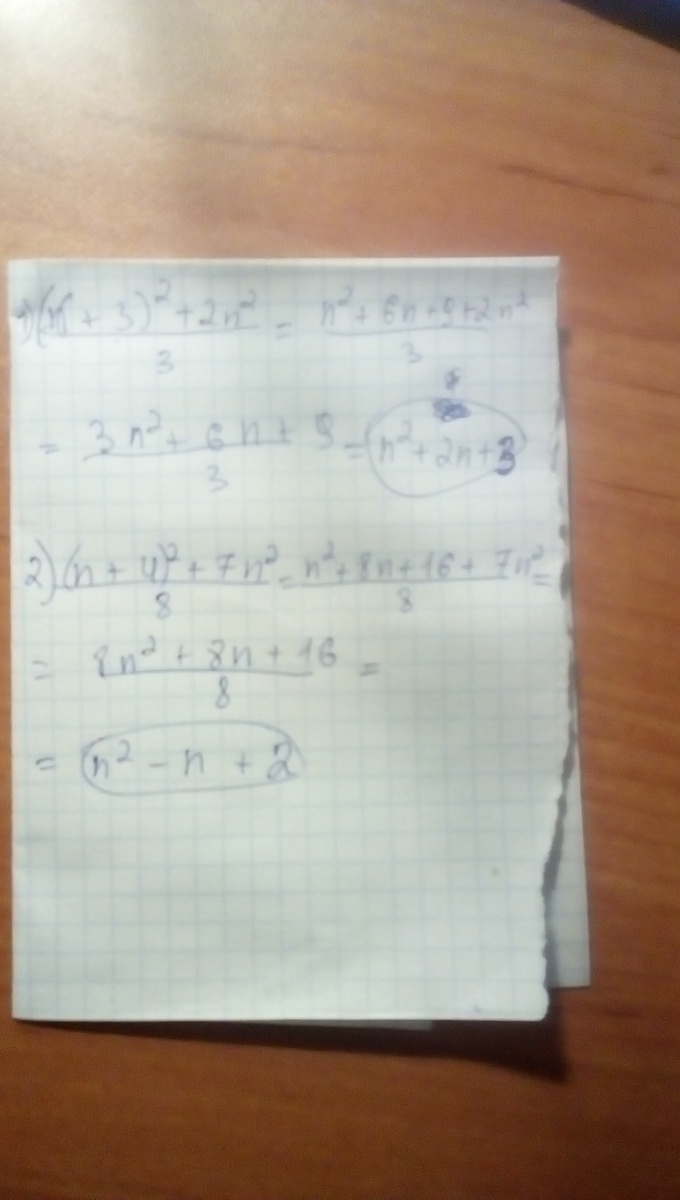 1) (n + 3)² + 2n² / 3 = n² + 6n + 9 + 2n² / 3
= 3n² + 6n + 9 / 3 = n² + 2n + 3
2) (n + 4)² + 7n² / 8 = n² + 8n + 16 + 7n² / 8 =
= 8n² + 8n + 16 / 8 =
= n² − n + 2